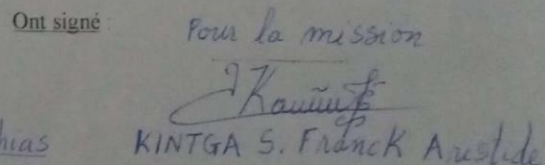 Ont signé
Pour la mission
hias KINTGA S. Franck Aristide